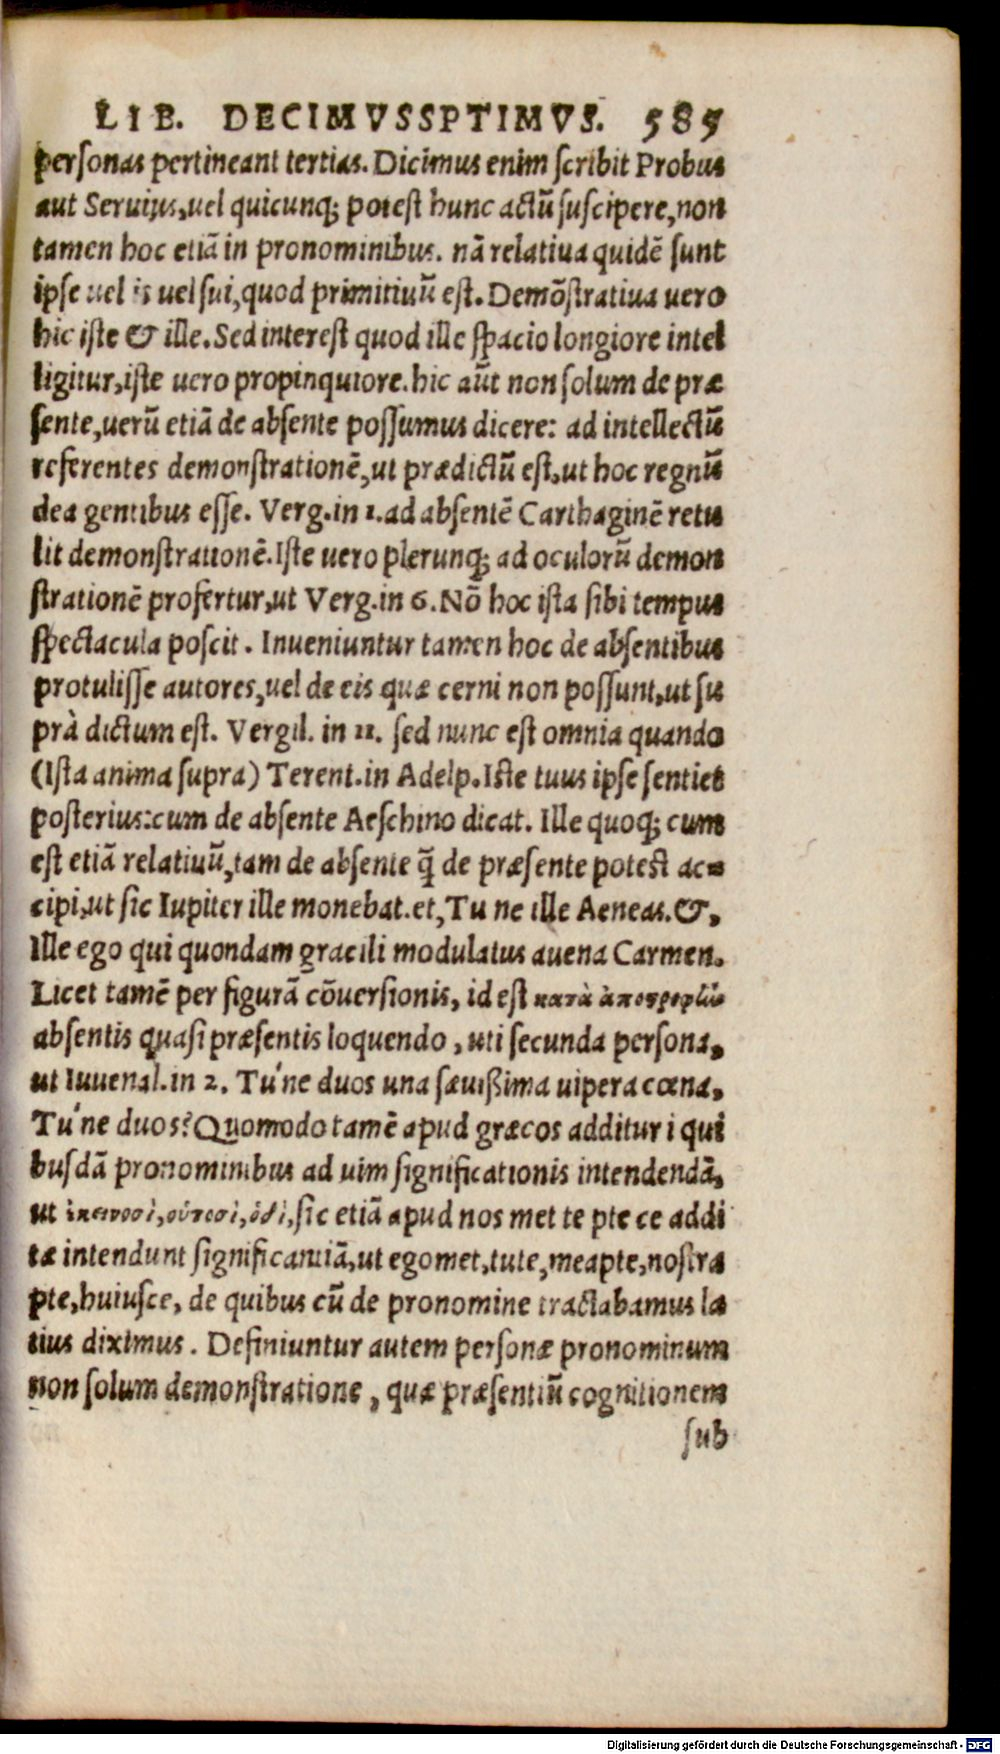 LIB. DECIMVSSPTIMVS. 585
personas pertineant tertias. Dicimus enim scribit Probus
aut Seruius, uel quicunq; potest hunc actũ suscipere, non
tamen hoc etiã in pronominibus. nã relatiua quidẽ sunt
ipse uel is uel sui, quod primitiuũ est. Demõstratiua uero
hic iste & ille. Sed interest quod ille spacio longiore intel
ligitur, iste uero propinquiore. hic aũt non solum de præ
sente, uerũ etiã de absente possumus dicere: ad intellectũ
referentes demonstrationẽ, ut prædictũ est, ut hoc regnũ
dea gentibus esse. Verg. in 1. ad absentẽ Carthaginẽ retu
lit demonstrationẽ. Iste uero plerunq; ad oculorũ demon
strationẽ profertur, ut Verg. in 6. Nõ hoc ista sibi tempus
spectacula poscit. Inueniuntur tamen hoc de absentibus
protulisse autores, uel de eis quæ cerni non possunt, ut su
prà dictum est. Vergil. in 11. sed nunc est omnia quando
(Ista anima supra) Terent. in Adelp. Iste tuus ipse sentiet
posterius: cum de absente Aeschino dicat. Ille quoq; cum
est etiã relatiuũ, tam de absente q̃ de præsente potest ac=
cipi, ut sic Iupiter ille monebat. et, Tu ne ille Aeneas. &,
Ille ego qui quondam gracili modulatus auena Carmen.
Licet tamẽ per figurã cõuersionis, id est κατὰ ἀποστροφὴν
absentis quasi præsentis loquendo, uti secunda persona,
ut Iuuenal. in 2. Tú ne duos una sæuißima uipera cœna,
Tú ne duos? Quomodo tamẽ apud græcos additur i qui
busdã pronominibus ad uim significationis intendendã,
ut ἐκεινοσὶ, οὑτοσὶ, ὁδὶ, sic etiã apud nos met te pte ce addi
tæ intendunt significantiã, ut egomet, tute, meapte, nostra
pte, huiusce, de quibus cũ de pronomine tractabamus la
tius diximus. Definiuntur autem personæ pronominum
non solum demonstratione, quæ præsentiũ cognitionem
sub
Digitalisierung gefördert durch die Deutsche Forschungsgemeinschaft - DFG